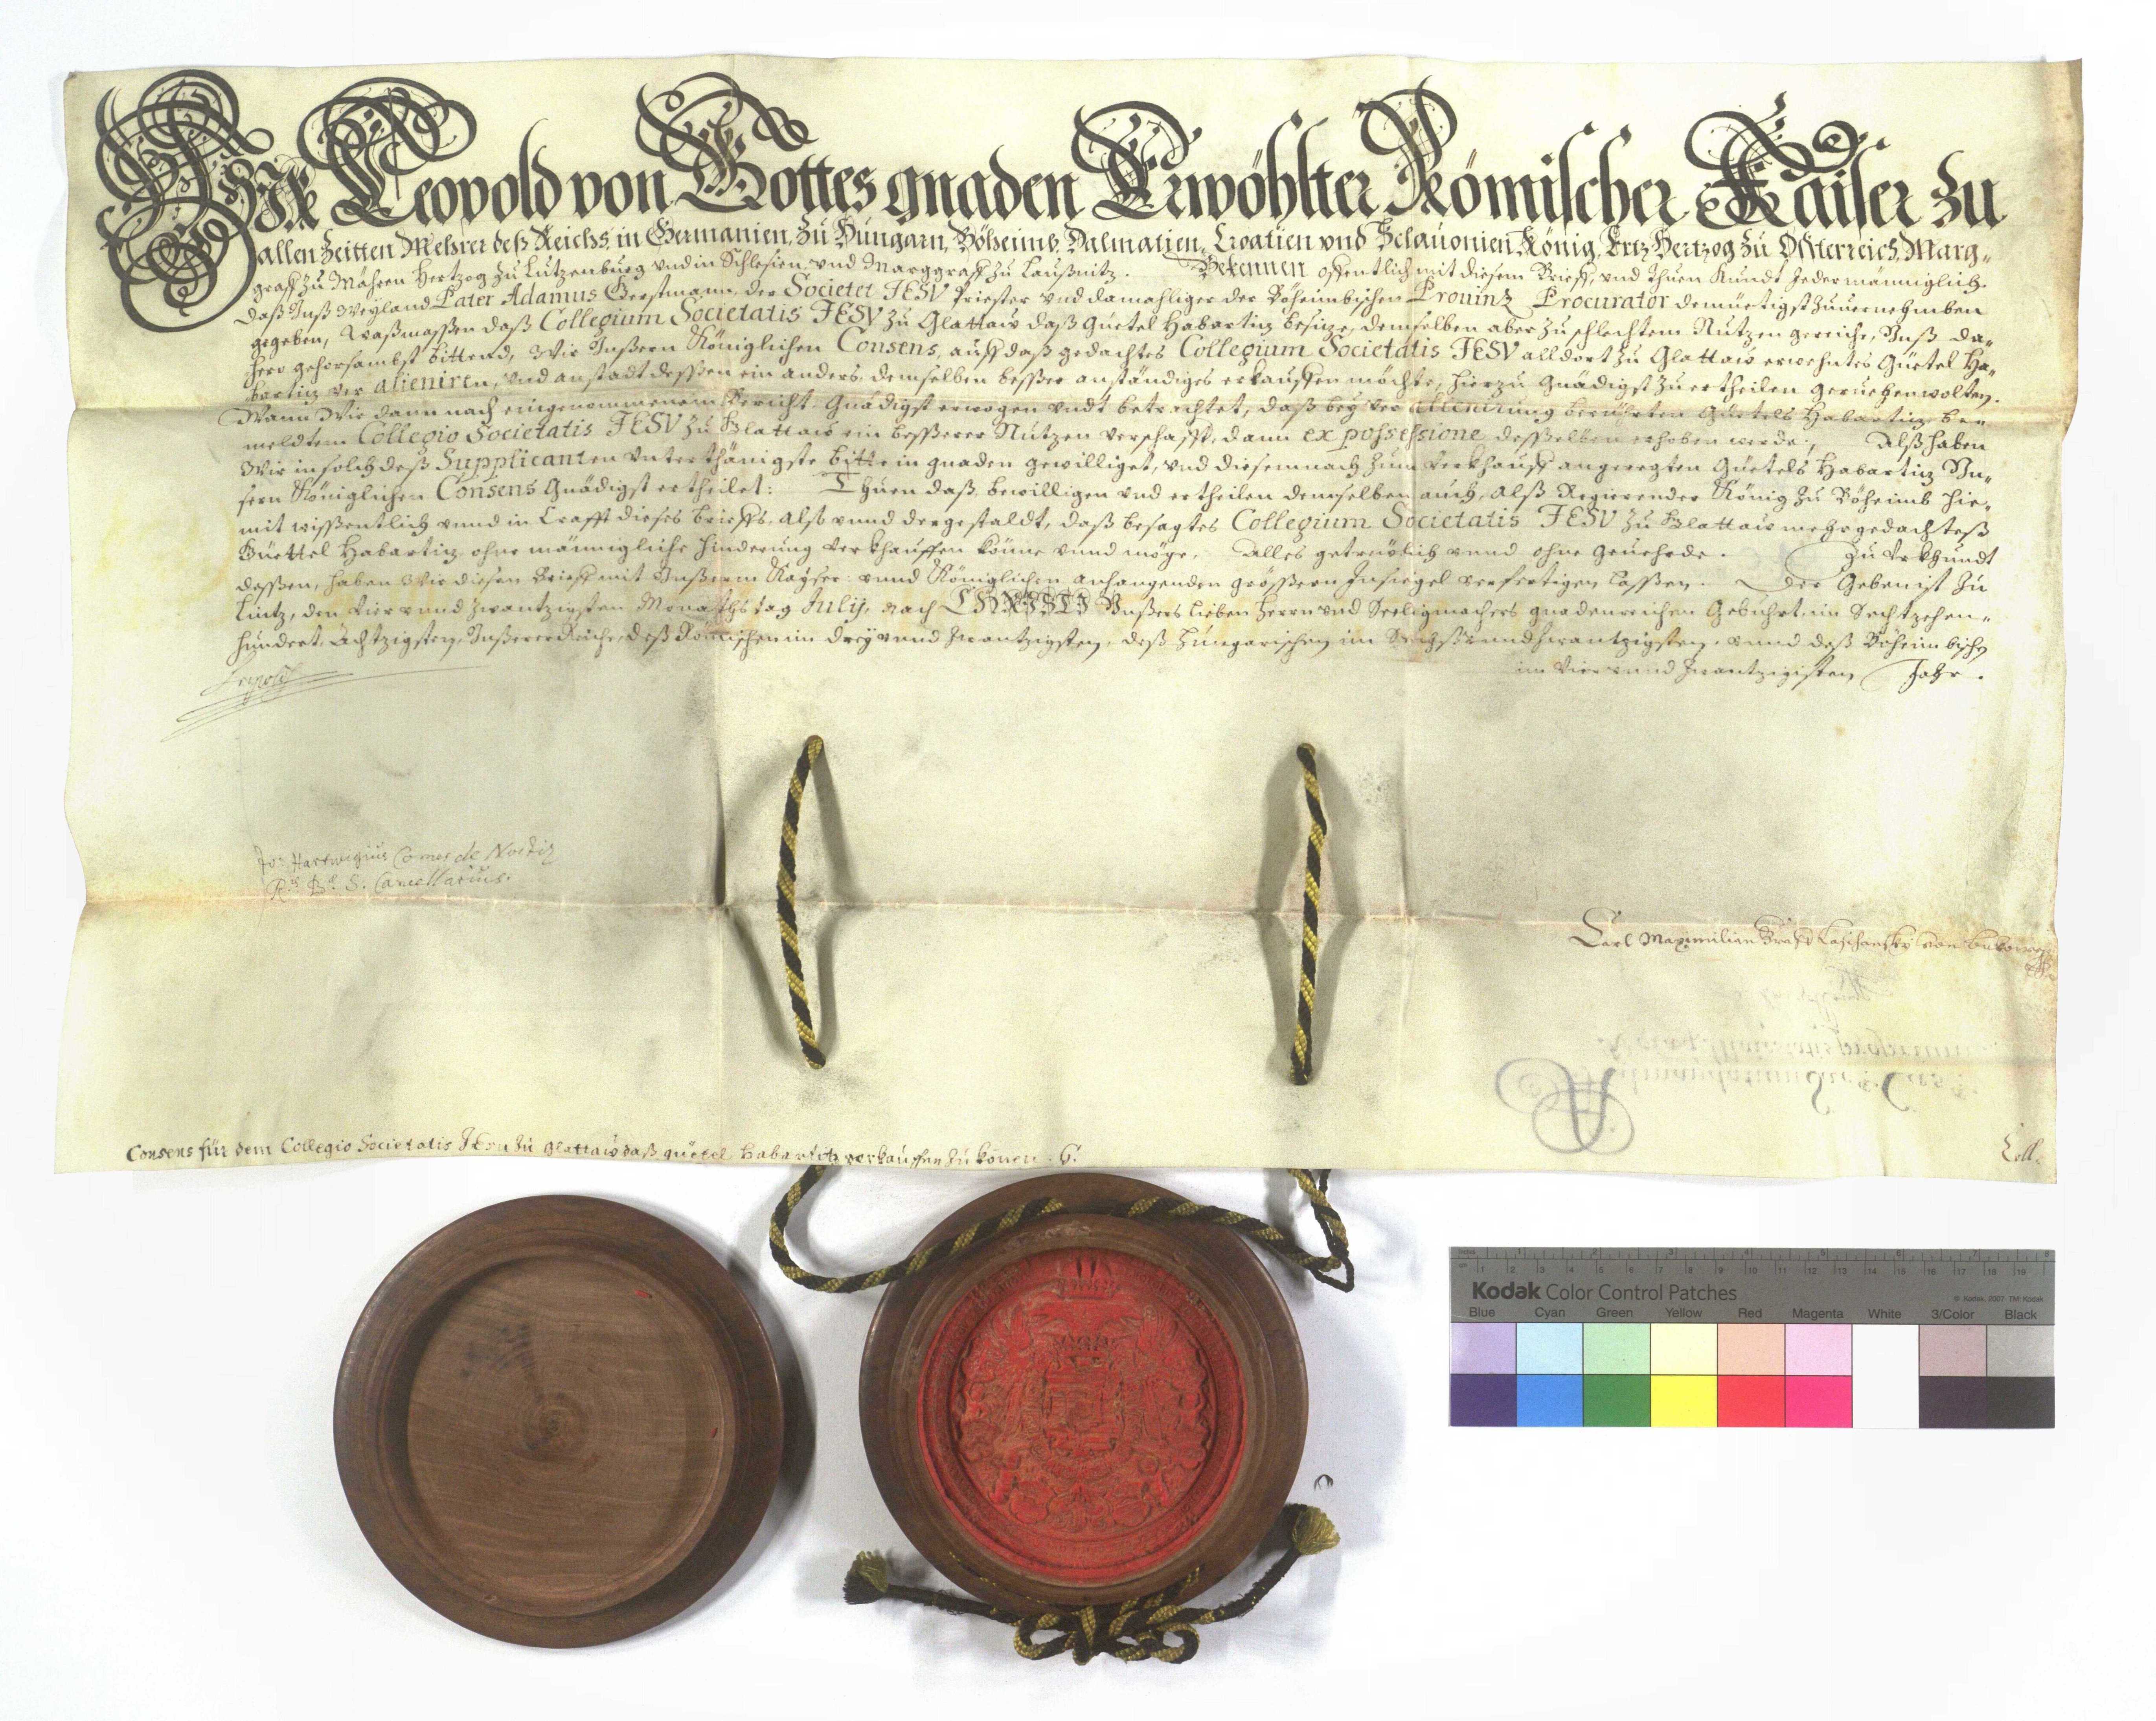 Wir Leopold von Gottes gnaden Erwöhlter Römischer Kaiser zu
allen Zeitten Mehrer deß Reichs, in Germanien, zu Hungarn, Böheimb, Dalmatien, Croatien vnd Sclauonien König, Ertz Hertzog zu Össterreich, Marg-
graff zu Mähren Hertzog zu Lützenburg vnd in Schlesien, vnd Marggraff zu Laußnitz. Bekennen offentlich mit diesem Brieff, vnd thuen kundt Jedermänniglich.
Daß Unß Weyland Pater Adamus Gerstmann, der Societet JESV Priester vnd damahliger der Böheimbischen Prouinz Procurator demüetigst zuuernehmben
gegeben, Waßmassen daß Collegium Societatis JESV zu Glattaw daß Güetel Habartiz besitze, demselben aber zu schlechtem Nutzen gereiche, Unß da-
hero gehorsambst bittend, Wir Unßern Königlichen Consens, auff daß gedachtes Collegium Societatis JESV alldort zu Glattaw erwehntes Güetel Ha-
bartiz ver alieniren, vnd anstadt dessen ein anders, demselben besser anständiges erkauffen möchte, hierzu Gnädigst zu ertheilen geruehen wolten.
Wann Wir dann nach eingenommenem Bericht Gnädigst erwogen vndt betrachtet, daß bey ver alienirung berührten Güetels Habartiz be-
meldtem Collegio Societatis JESV zu Glattaw ein besserer Nutzen verschafft, dann ex possessione desselben erhoben werde; Alß haben
Wir in solch deß Supplicanten Unterthänigste bitte in gnaden gewilliget, vnd diesemnach zum Verkhauff angeregten Güetels Habartiz Un-
sern Königlichen Consens Gnädigst ertheilet: Thuen daß, bewilligen vnd ertheilen demselben auch, alß Regierender König zu Böheimb hie-
mit wissentlich vnnd in Crafft dieses brieffs, also vnnd dergestaldt, daß besagtes Collegium Societatis JESV zu Glattaw mehrgedachteß
Güettel Habartiz ohne männigliche hinderung verkhauffen könne vnnd möge. Alles getreülich vnnd ohne Gevehrde. Zu Vrkhundt
dessen, haben Wir diesen Brieff mit Unßerm Kayser: vnnd Königlichen anhangenden größern Insiegel verfertigen lassen. Der Geben ist zu
Lintz, den Vier vnnd zwantzigsten Monathstag Julij, nach CHRISTI Unßers lieben Herrn vnd Seeligmachers gnadenreichen Gebuhrt, im Sechtzehen-
hundert Achtzigsten, Unßerer Reiche, deß Römischen im drey vnnd zwantzigsten, deß Hungarischen im Sechß vnnd zwantzigsten, vnnd deß Böheimbischen
im Vier vnnd zwantzigisten Jahr.
Leopold
Jo: Hartwigius Comes de Nostiz
R. B. S. Cancellarius.
Carl Maximilian Graff Laschansky von Bukowe
Consens für dem Collegio Societatis Jesu zu Glattaw daß güetel Habartitz verkauffen zu könen.
Coll.
Kodak Color Control Patches
© Kodak, 2007 TM: Kodak
Blue Cyan Green Yellow Red Magenta White 3/Color Black